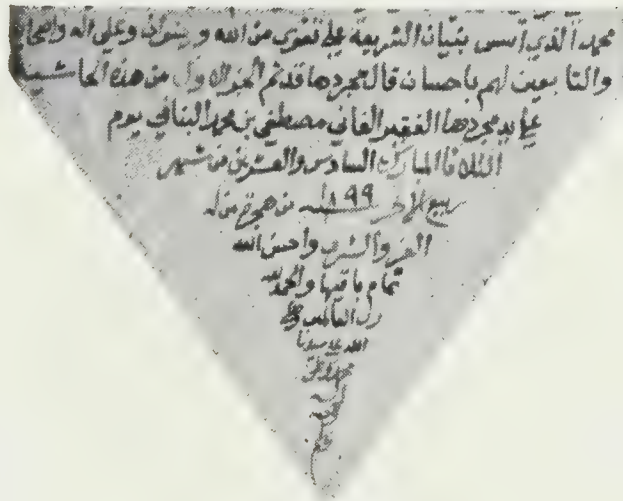 محمد الذي أسس بنيان الشريعة على تقوى من الله ورضوان وعلى آله وأصحابه
والتابعين لهم باحسان قال مجردها قد تم الجزء الاول من هذه الحاشية
على يد مجردها الفقير الفاني مصطفي بن محمد البناني يوم
الثلاثا المبارك السادس والعشرين من شهر
ربيع الاخر سنة ١١٩٩ من هجرة من له
العز والشرف واحسن الله
تمام باقيها والحمد لله
رب العالمين وصلى
الله على سيدنا
محمد وعلى
اله
وصحبه
وسلم